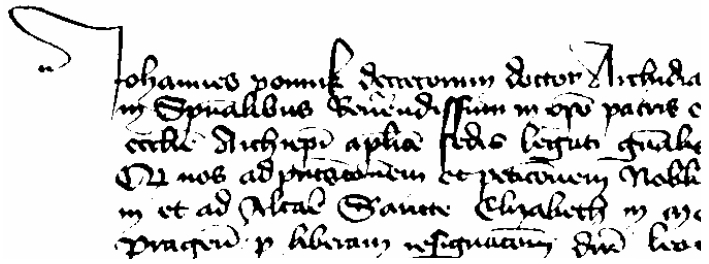 Johannes pomuk decretorum doctor Archidia
in Spūalibus Reuendissimi in xpō patris
ecclīe Archiepī aplicē sedis legati gnālis
Q nos ad pñtacōnem et peticōnem Nobili
in et ad Altare Sancte Elyzabeth in
pragen̄ p liberam resignacōem dnī